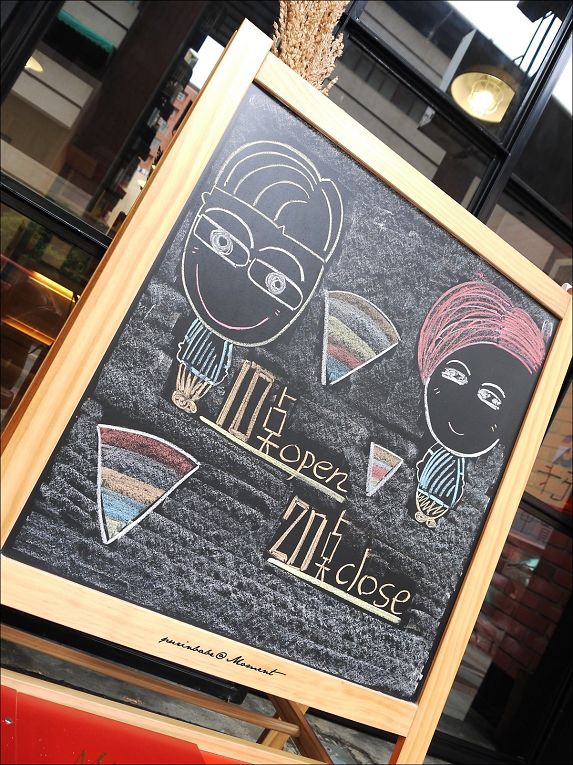 10点open
20点close
purinbabe@Moment